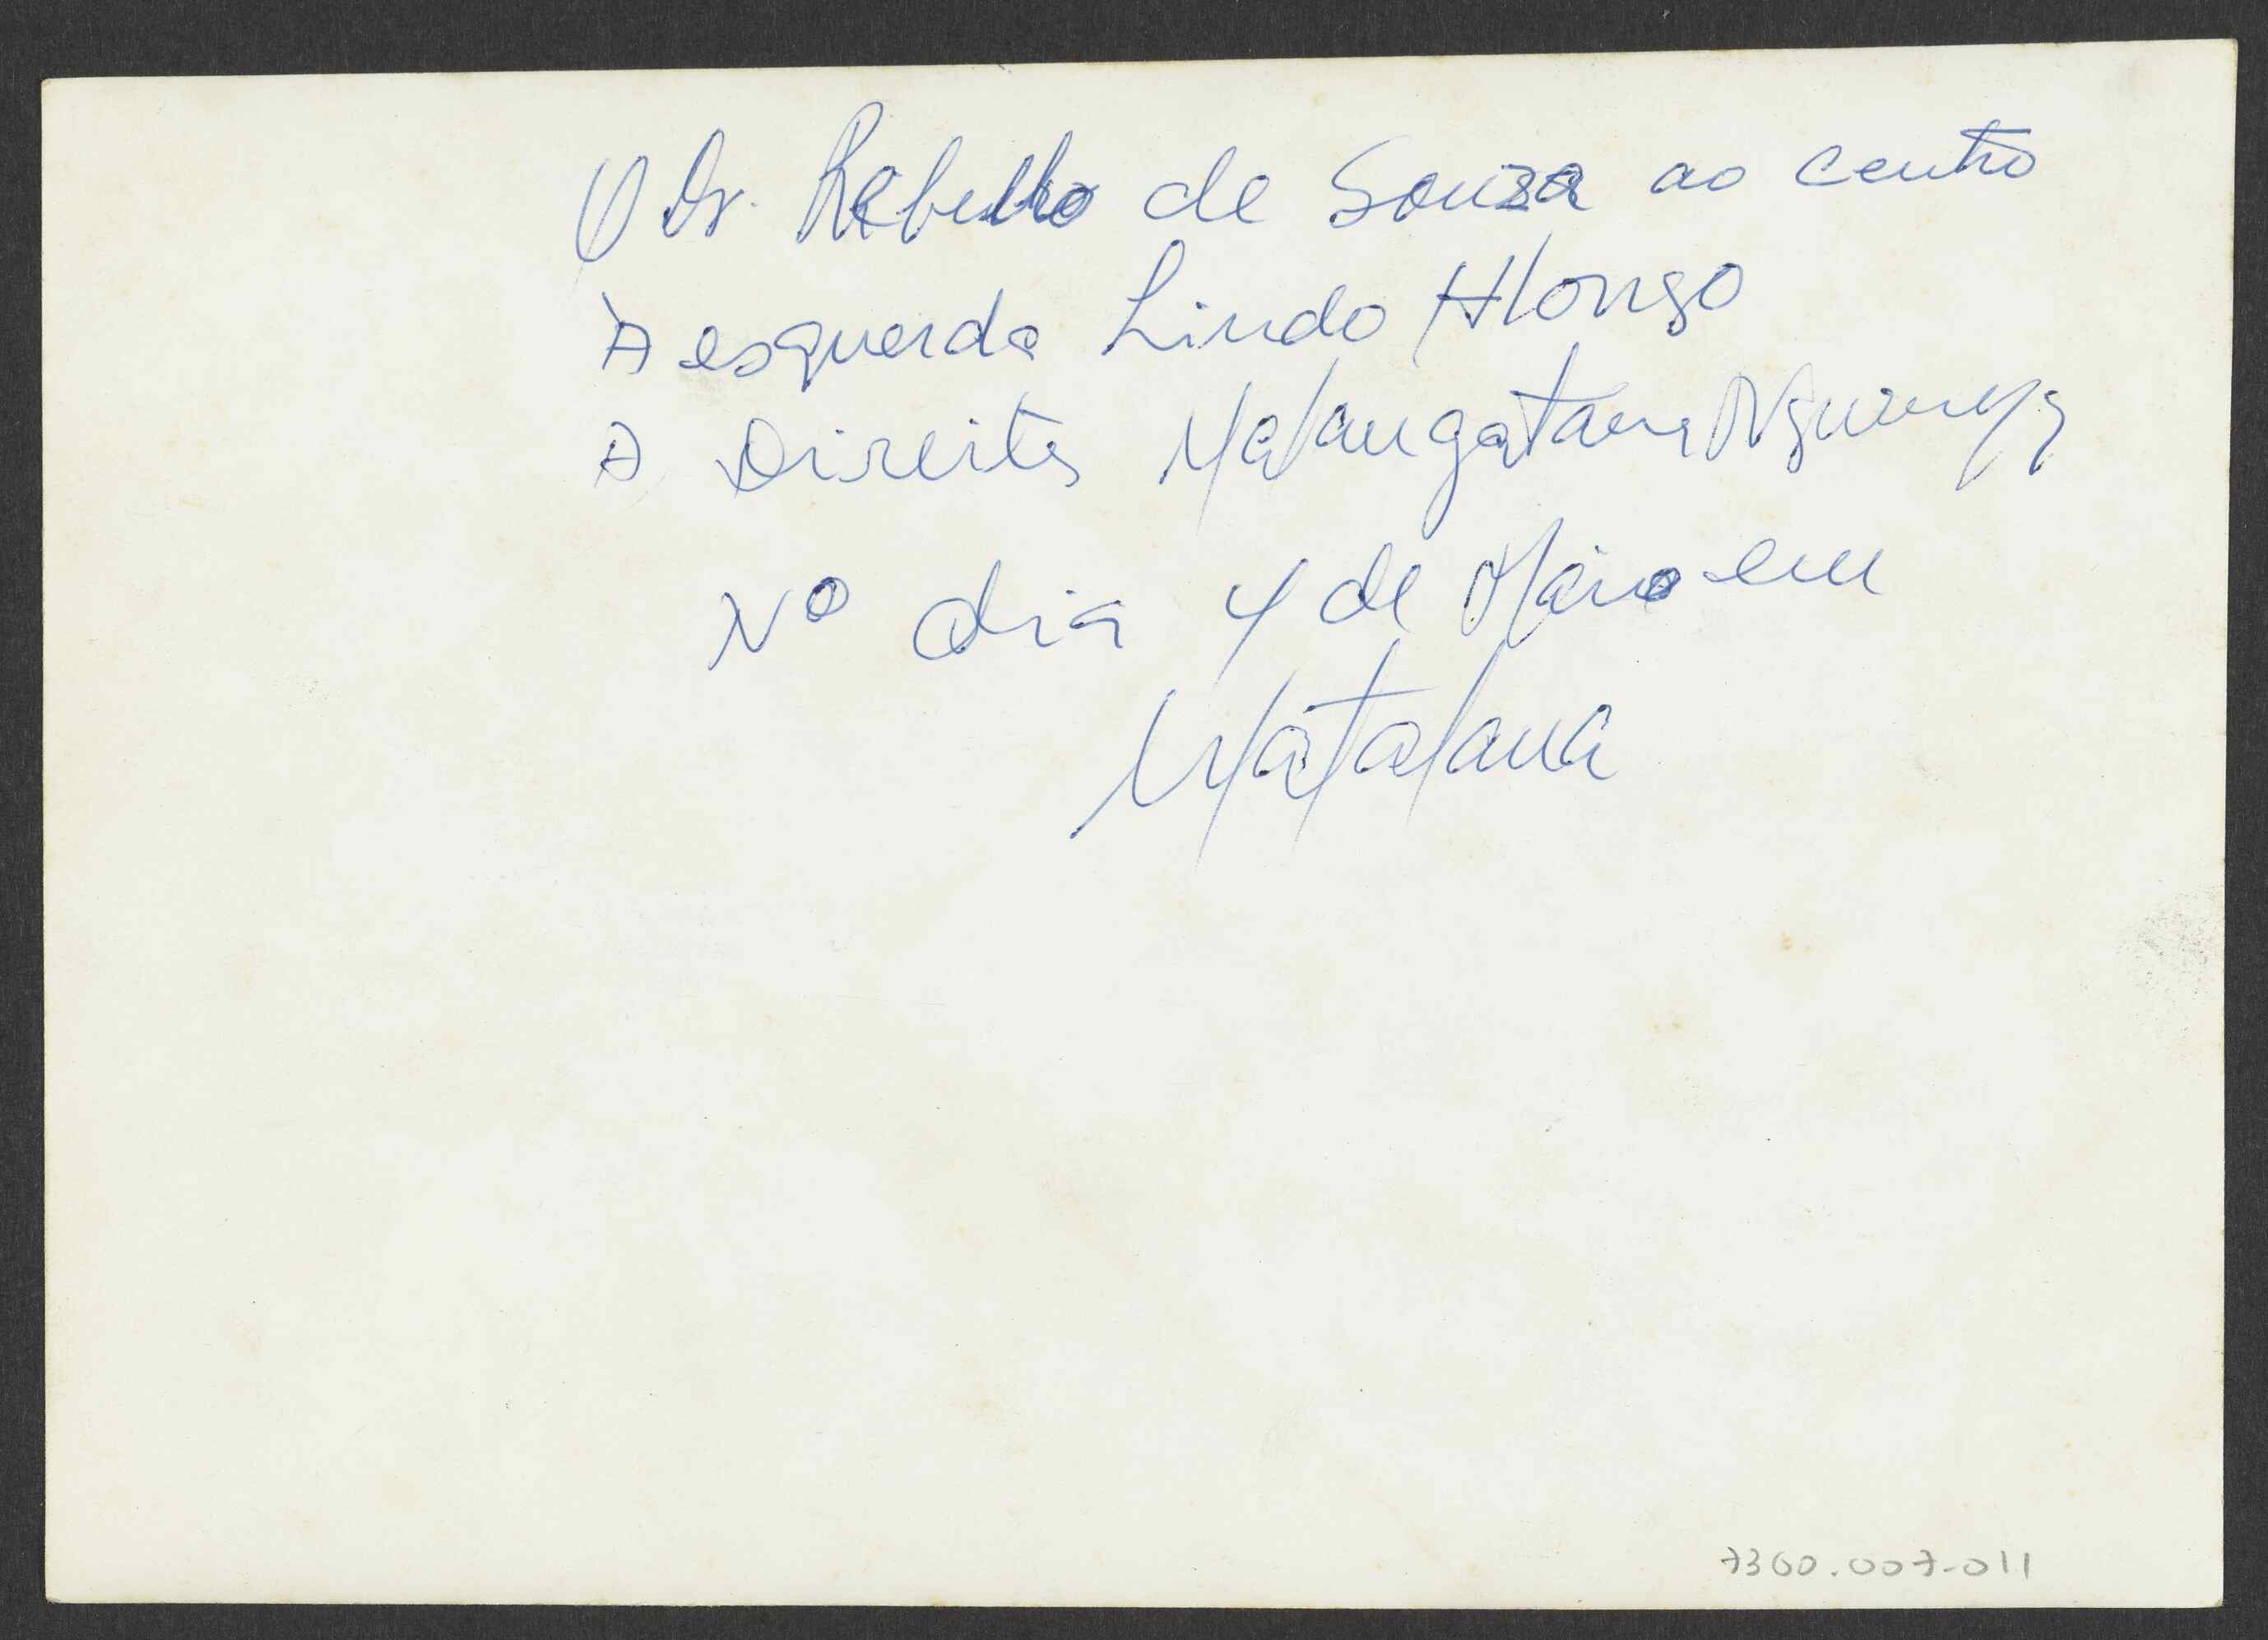 O Dr. Rebello de Souza ao centro
À esquerda Lindo Hlongo
A Direita Malangatana Ngwenya
No dia 4 de Maio em
Matalana
7360.007-011